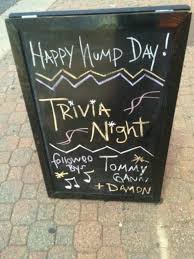 HAPPY HUMP DAY!
TRIVIA
Night
followed
by: TOMMY
GANN
+ DAMON